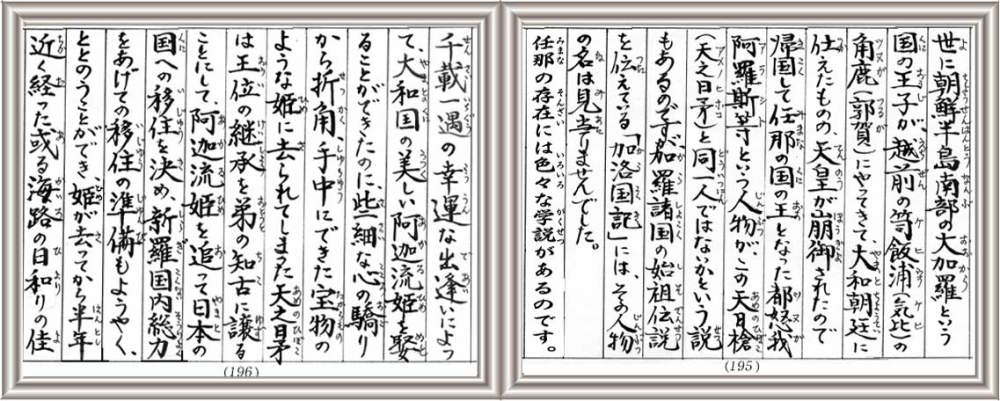 世に朝鮮半島南部の大加羅という
国の王子が、越前の笥飯浦(気比)の
角鹿(敦賀)にやってきて、大和朝廷に
仕えたものの、天皇が崩御されたので
帰国して任那の国の王となった都怒我
阿羅斯等という人物が、この天日槍
(天之日矛)と同一人ではないかという説
もあるのですが、加羅諸国の始祖伝説
を伝えている「加洛国記」には、その人物
の名は見当りませんでした。
任那の存在には色々な学説があるのです。
(195)
千載一遇の幸運な出逢いによっ
て、大和国の美しい阿迦流姫を娶
ることができたのに、些細な心の驕り
から折角、手中にできた宝物の
ような姫に去られてしまった天之日矛
は王位の継承を弟の知古に譲る
ことにして、阿迦流姫を追って日本の
国への移住を決め、新羅国内総力
をあげての移住の準備もようやく、
ととのうことができ、姫が去ってから半年
近く経った或る海路の日和りの佳
(196)